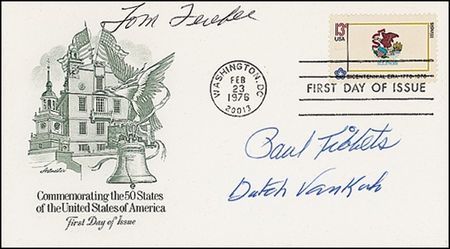 Tom Ferebee
13¢
USA
ILLINOIS
BICENTENNIAL ERA 1776-1976
WASHINGTON, DC
FEB
23
1976
20013
FIRST DAY OF ISSUE
Paul Tibbets
Dutch VanKirk
Artmaster
Commemorating the 50 States
of the United States of America
First Day of Issue